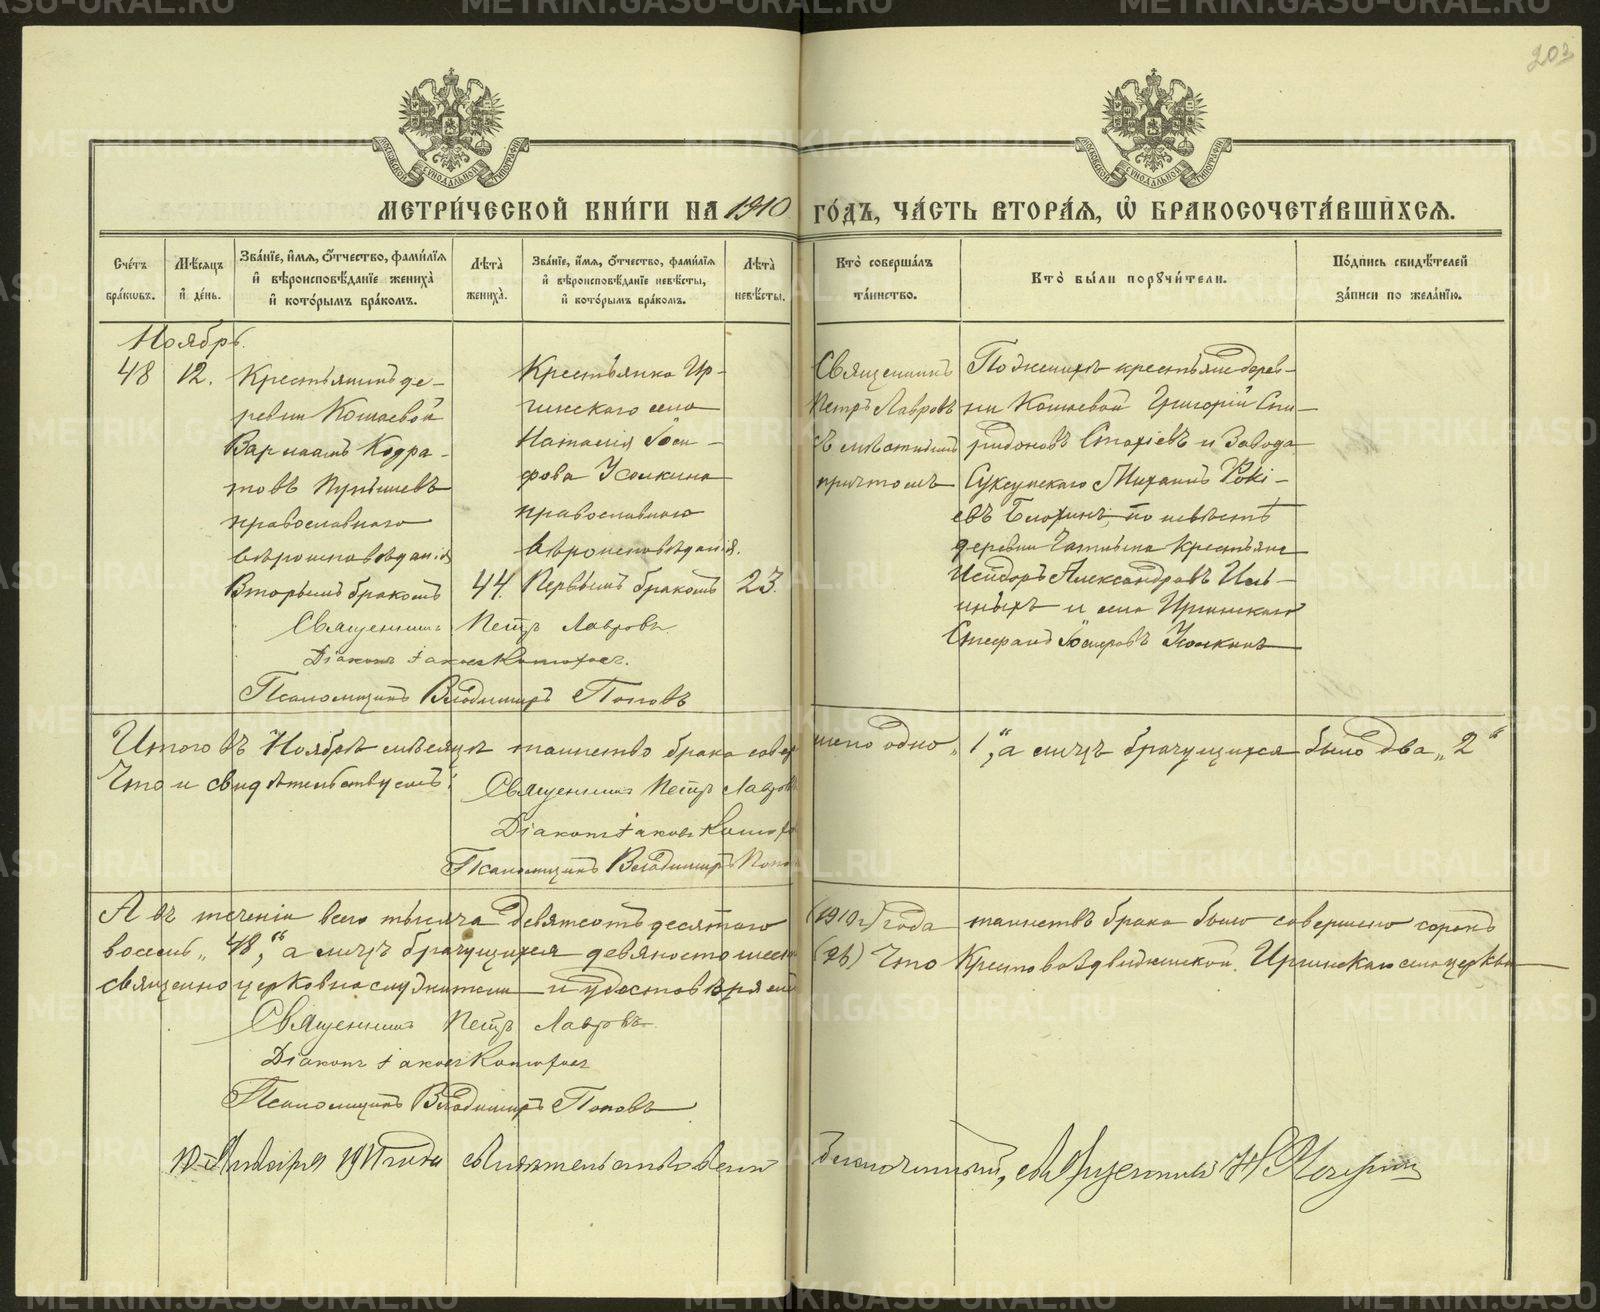 203
МОСКОВСКОЙ СѴНОДАЛЬНОЙ ТИПОГРАФІИ
МОСКОВСКОЙ СѴНОДАЛЬНОЙ ТИПОГРАФІИ
МЕТРИ́ЧЕСКОЙ КНИ́ГИ НА 1910 ГО́ДЪ, ЧА́СТЬ ВТОРА́Я, Ѽ БРАКОСОЧЕТА́ВШИХСЯ.
Сче́тъ бра́ковъ.
Мѣ́сяцъ и҆ де́нь.
Зва́нїе, и҆́мя, ѻ҆́тчество, фами́лїя и҆ вѣроисповѣ́данїе жениха̀ и҆ кото́рымъ бра́комъ.
Лѣ́та жениха̀.
Зва́нїе, и҆́мя, ѻ҆́тчество, фами́лїя и҆ вѣроисповѣ́данїе невѣ́сты, и҆ кото́рымъ бра́комъ.
Лѣ́та невѣ́сты.
Кто̀ соверша́лъ та́инство.
Кто̀ бы́ли порꙋчи́тели.
По́дпись свидѣ́телей за́писи по жела́нїю.
Ноябрь.
48
12.
Крестьянинъ де-
ревни Кошаевой
Варлаамъ Кодра-
товъ Пупышевъ
православнаго
вѣроисповѣданія
Вторымъ бракомъ
44.
Крестьянка Ир-
гинскаго села
Наталія Іоси-
фова Усолкина
православнаго
вѣроисповѣданія.
Первымъ бракомъ
23.
Священникъ
Петръ Лавровъ
съ мѣстнымъ
причтомъ
По женихѣ крестьяне дерев-
ни Кошаевой Григорій Спи-
ридоновъ Стахіевъ и Завода
Суксунскаго Михаилъ
евъ Блохинъ, по невѣстѣ
деревни крестьяне
Исидоръ Александровъ Иль-
иныхъ и села Иргинскаго
Стефанъ Усолкинъ
Священникъ Петръ Лавровъ.
Діаконъ Іаковъ
Псаломщикъ Владимиръ Поповъ
Итого въ Ноябрѣ мѣсяцѣ таинство брака совер
шено одно „1,“ а лицъ брачущихся было два „2“
Что и свидѣтельствуемъ:
Священникъ Петръ Лавровъ
Діаконъ Іаковъ
Псаломщикъ Владимиръ Попов
А въ теченіи всего тысяча девятсотъ десятаго (1910 г.) года таинствъ брака было совершено сорокъ
восемь „48,“ а лицъ брачущихся девяносто шесть (96) Что Крестовоздвиженской Иргинскаго села церкви
священноцерковнослужители и удостовѣряемъ
Священникъ Петръ Лавровъ.
Діаконъ Іаковъ
Псаломщикъ Владимиръ Поповъ
Января 1911 года свидѣтельствовалъ благочинный, священникъ
METRIKI.GASO-URAL.RU